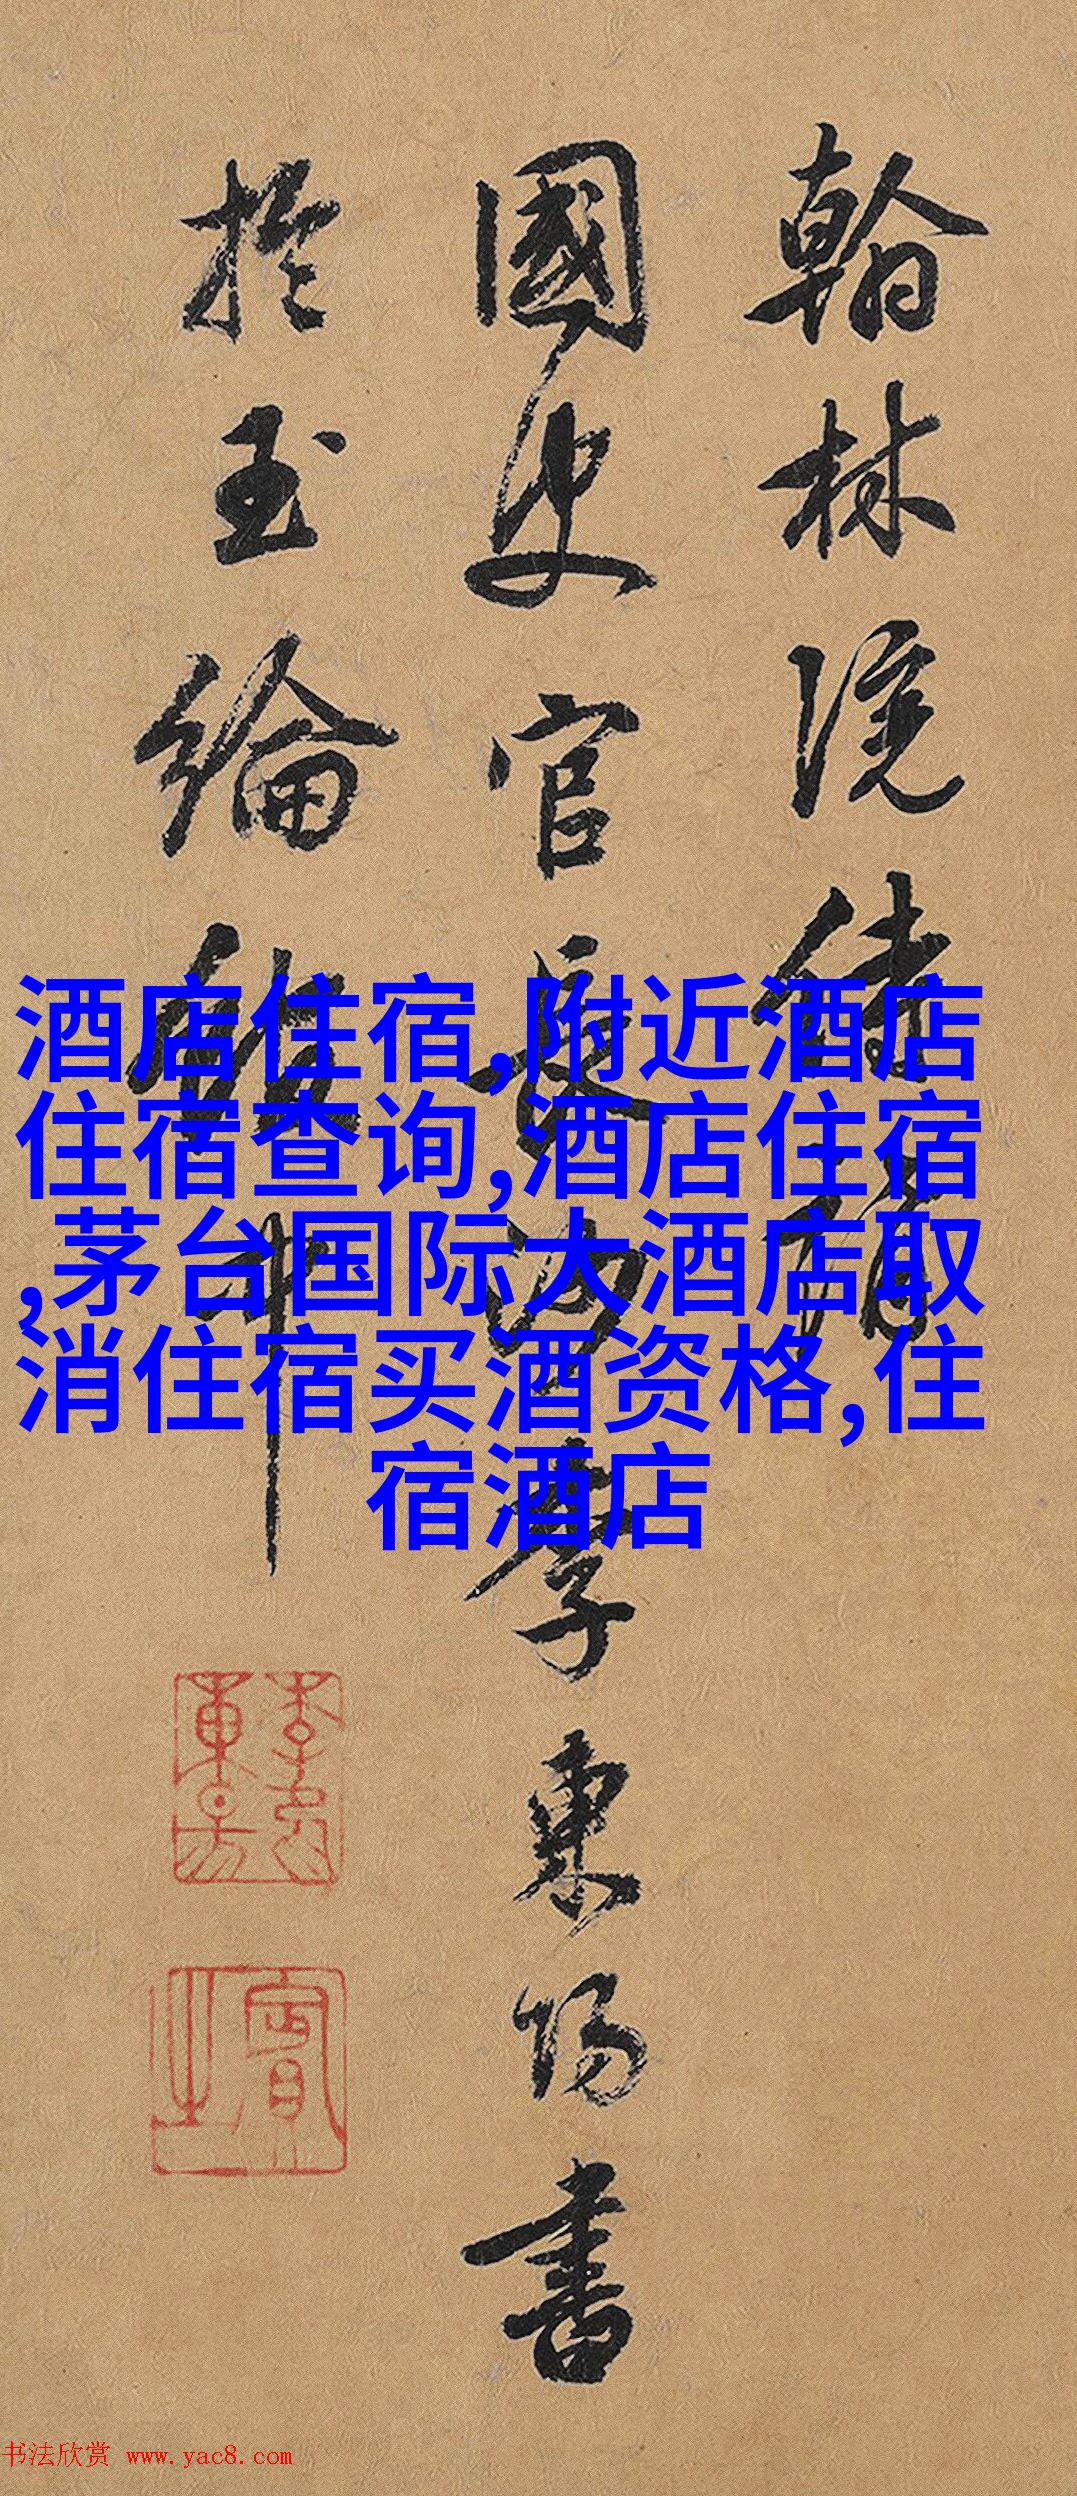 翰林院侍講
國史官長沙李東陽書
於玉綸館中
酒店住宿,附近酒店
住宿查询,酒店住宿
,茅台国际大酒店取
消住宿买酒资格,住
宿酒店
賓之
书法欣赏 www.yac8.com